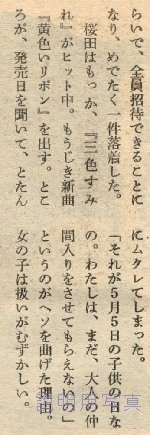 らいで、全員招待できることに
なり、めでたく一件落着した。
桜田はもっか、『三色すみ
れ』がヒット中。もうじき新曲
『黄色いリボン』を出す。とこ
ろが、発売日を聞いて、とたん
にムクレてしまった。
「それが5月5日の子供の日な
の。わたしは、まだ、大人の仲
間入りをさせてもらえないの」
というのがヘソを曲げた理由。
女の子は扱いがむずかしい。